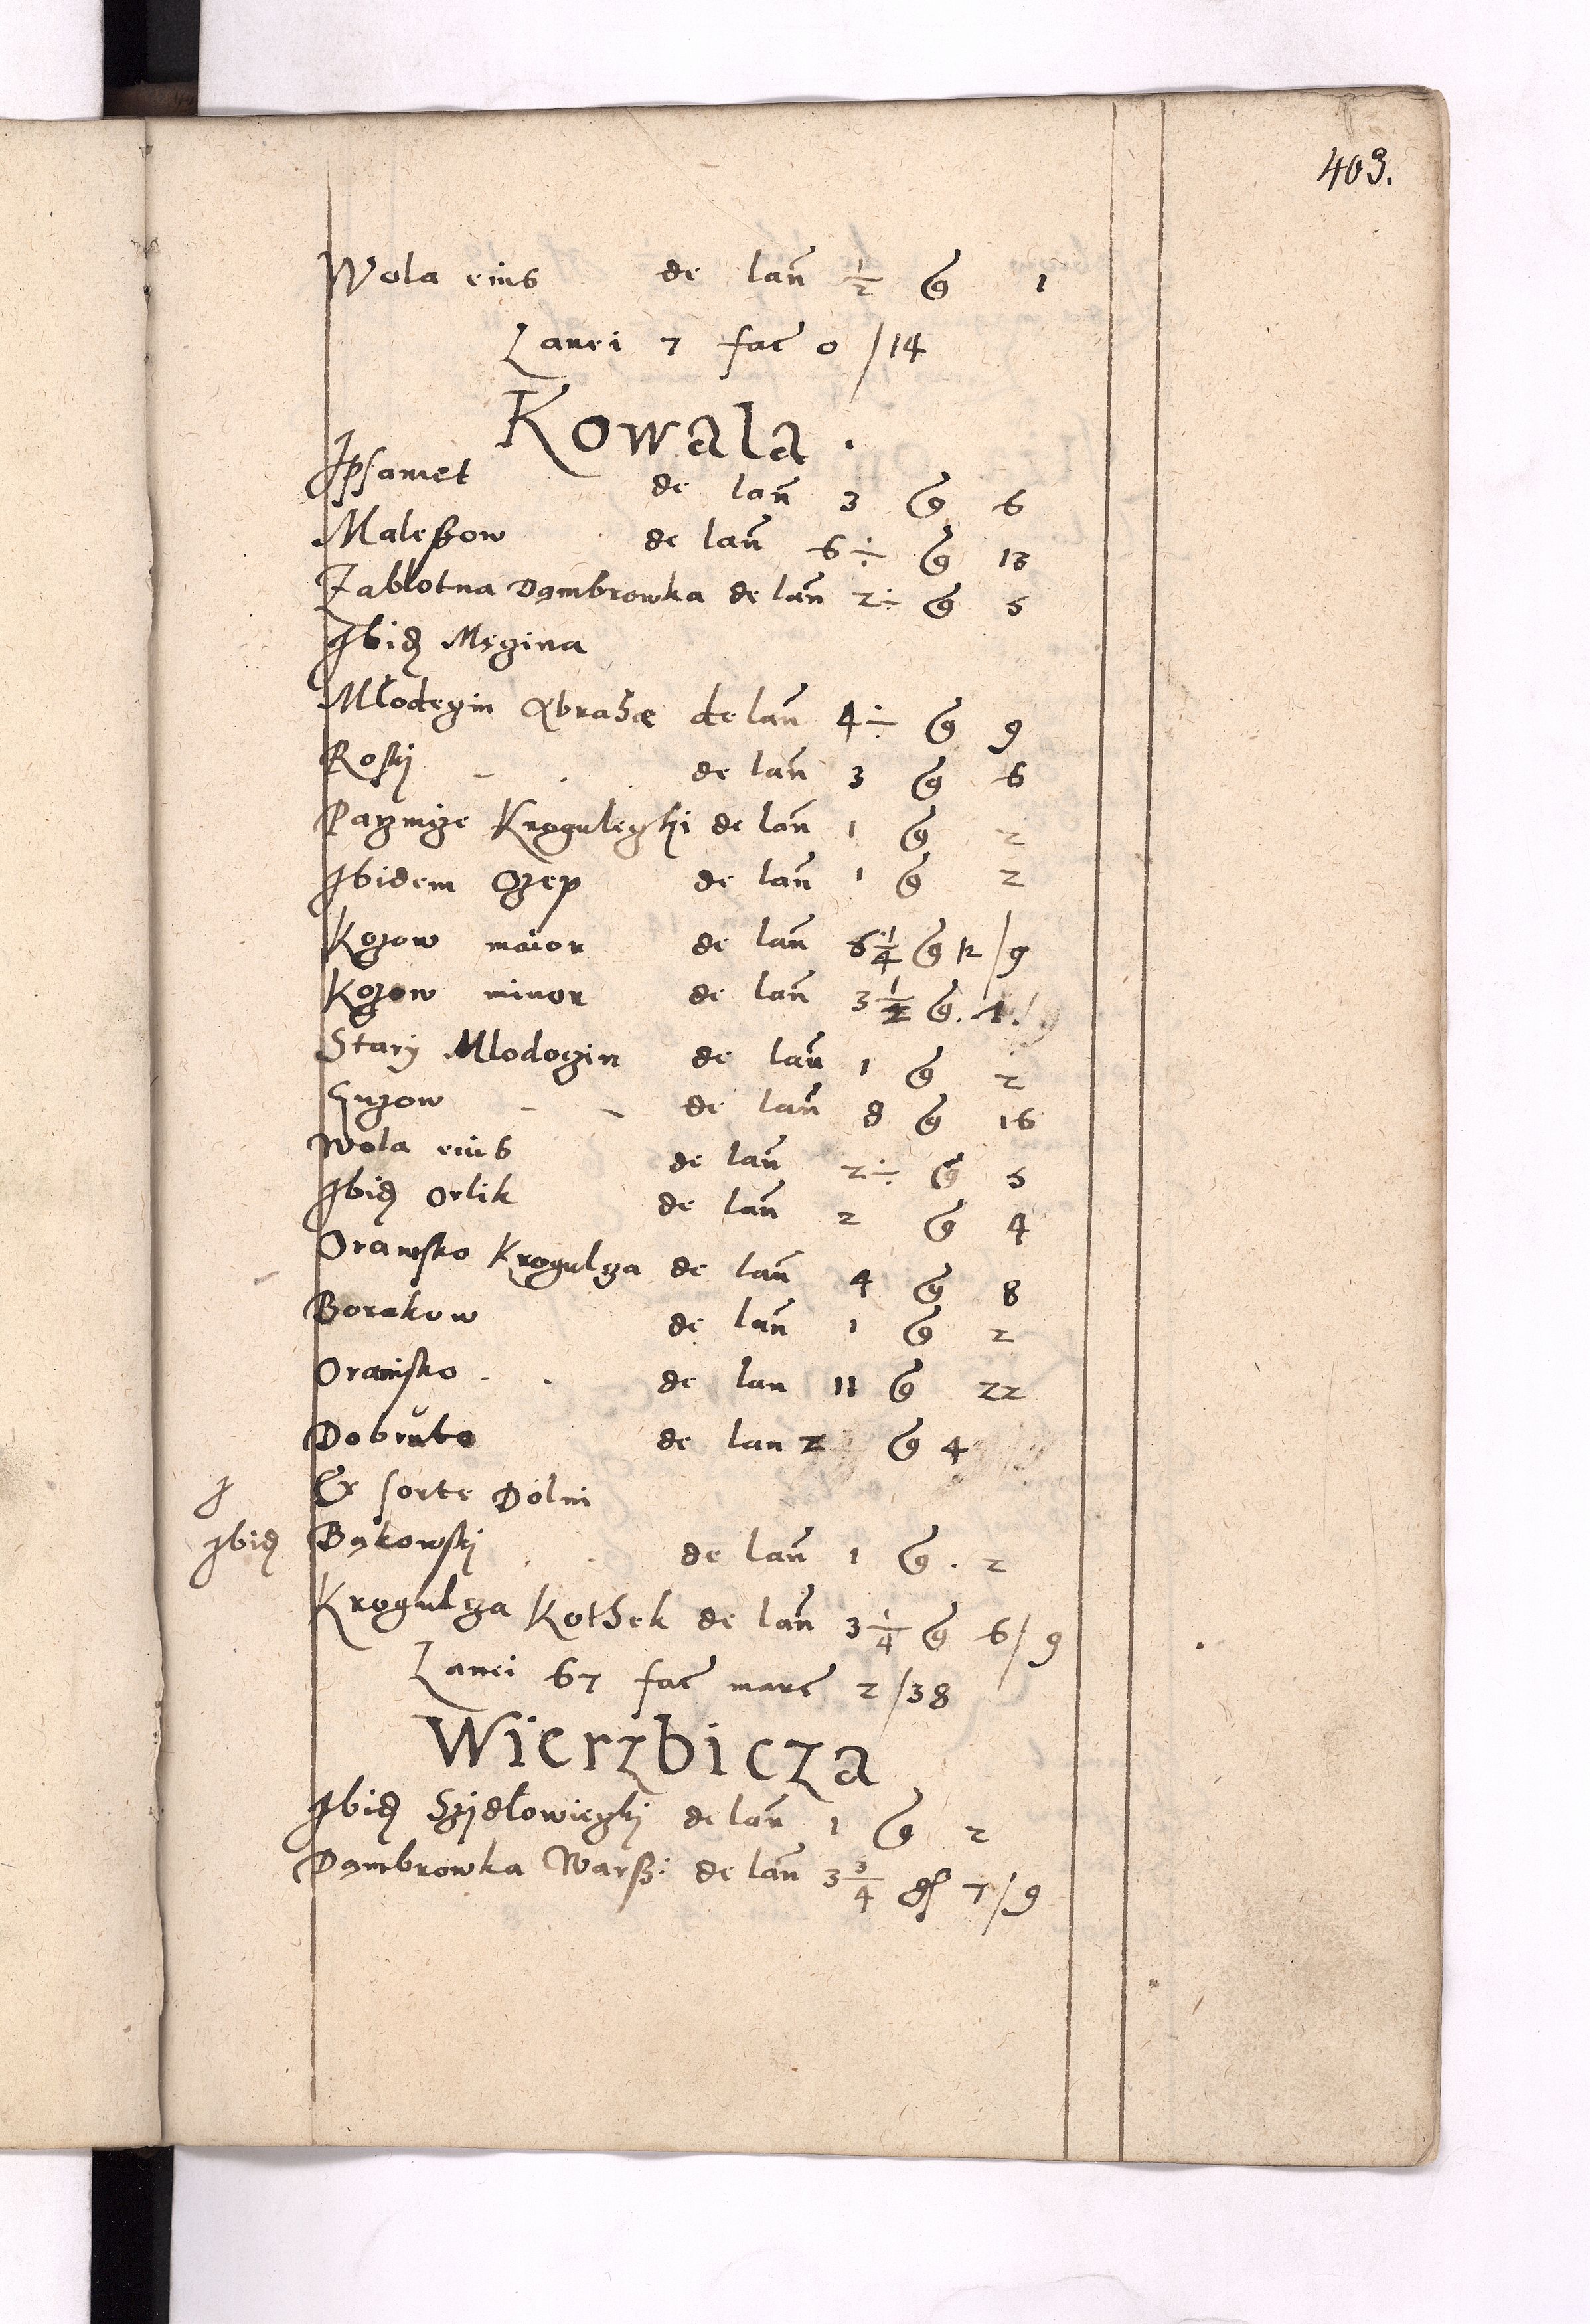 403.
Wola eius de lan̄ 1/2 g 1
Lanei 7 fac̄ 0/14
Kowala.
Ipsamet de lan̄ 3 g 6
Maleßow de lan̄ 6÷ g 13
Zablotna Dąmbrowka de lan̄ 2÷ g 5
Ibid Męgina
Młodczin Abrahæ de lan̄ 4÷ g 9
Rosky de lan̄ 3 g 6
Parzmcze Kroguleczki de lan̄ 1 g 2
Ibidem Czep de lan̄ 1 g 2
Kozow maior de lan̄ 6 1/4 g 12/9
Kozow minor de lan̄ 3 1/2 g.
Stary Mlodoczin de lan̄ 1 g 2
Guzow de lan̄ 8 g 16
Wola eius de lan̄ 2÷ g 5
Ibid Orlik de lan̄ 2 g 4
Oransko Krogulcza de lan̄ 4 g 8
Borakow de lan̄ 1 g 2
Oransko de lan 11 g 22
Dobrŭto de lan 2 g 4
J Ex sorte Dolni
Ibid Bąkowskj de lan̄ 1 g. 2
Krogulcza Kothek de lan̄ 3 1/4 g 6/9
Lanei 67 fac̄ marc̄ 2/38
Wierzbicza
Ibid Szydłowieczki de lan̄ 1 g 2
Dąmbrowka Warß: de lan̄ 3 3/4 gr 7/9